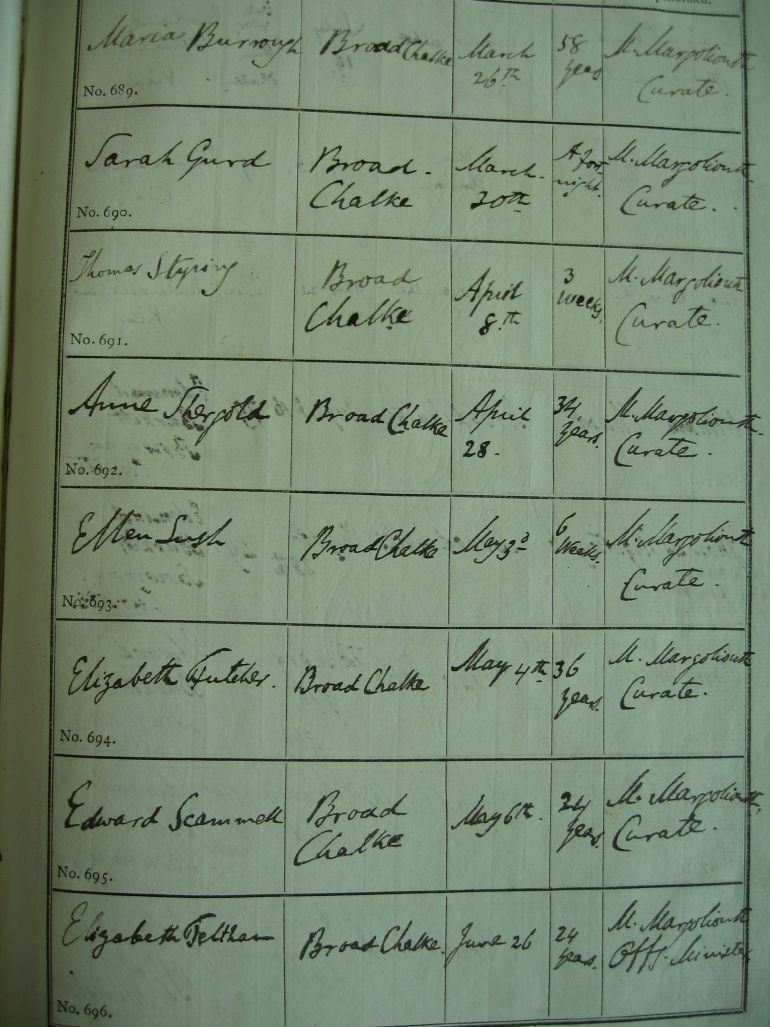 performed.
Maria Burrough Broad Chalke March 26th 58 years M. Margoliouth Curate.
No. 689.
Sarah Gurd Broad Chalke March 30th A fortnight. M. Margoliouth Curate.
No. 690.
Thomas Broad Chalke April 8th 3 weeks M. Margoliouth Curate.
No. 691.
Anne Shergold Broad Chalke April 28. 34 years. M. Margoliouth Curate.
No. 692.
Ellen Lush Broad Chalke May 3d 6 weeks. M. Margoliouth Curate.
No. 693.
Elizabeth Futcher. Broad Chalke May 4th 36 years. M. Margoliouth Curate.
No. 694.
Edward Scammell Broad Chalke May 6th. 24 years M. Margoliouth, Curate.
No. 695.
Elizabeth Feltham Broad Chalke. June 26 24 years. M. Margoliouth Offg. Minister
No. 696.